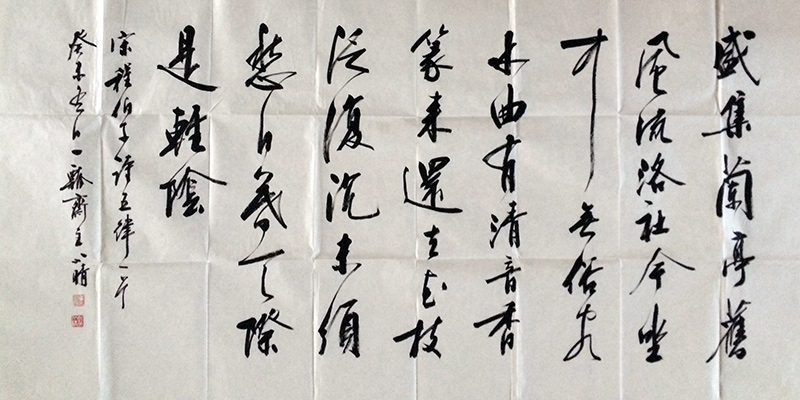 盛集蘭亭舊
風流洛社今坐
中無俗客
水曲有清音香
篆来還去花枝
泛復沉未須
愁日暮天際
是輕陰
宋程伯子詩五律一首
癸未春日一瓢齋主